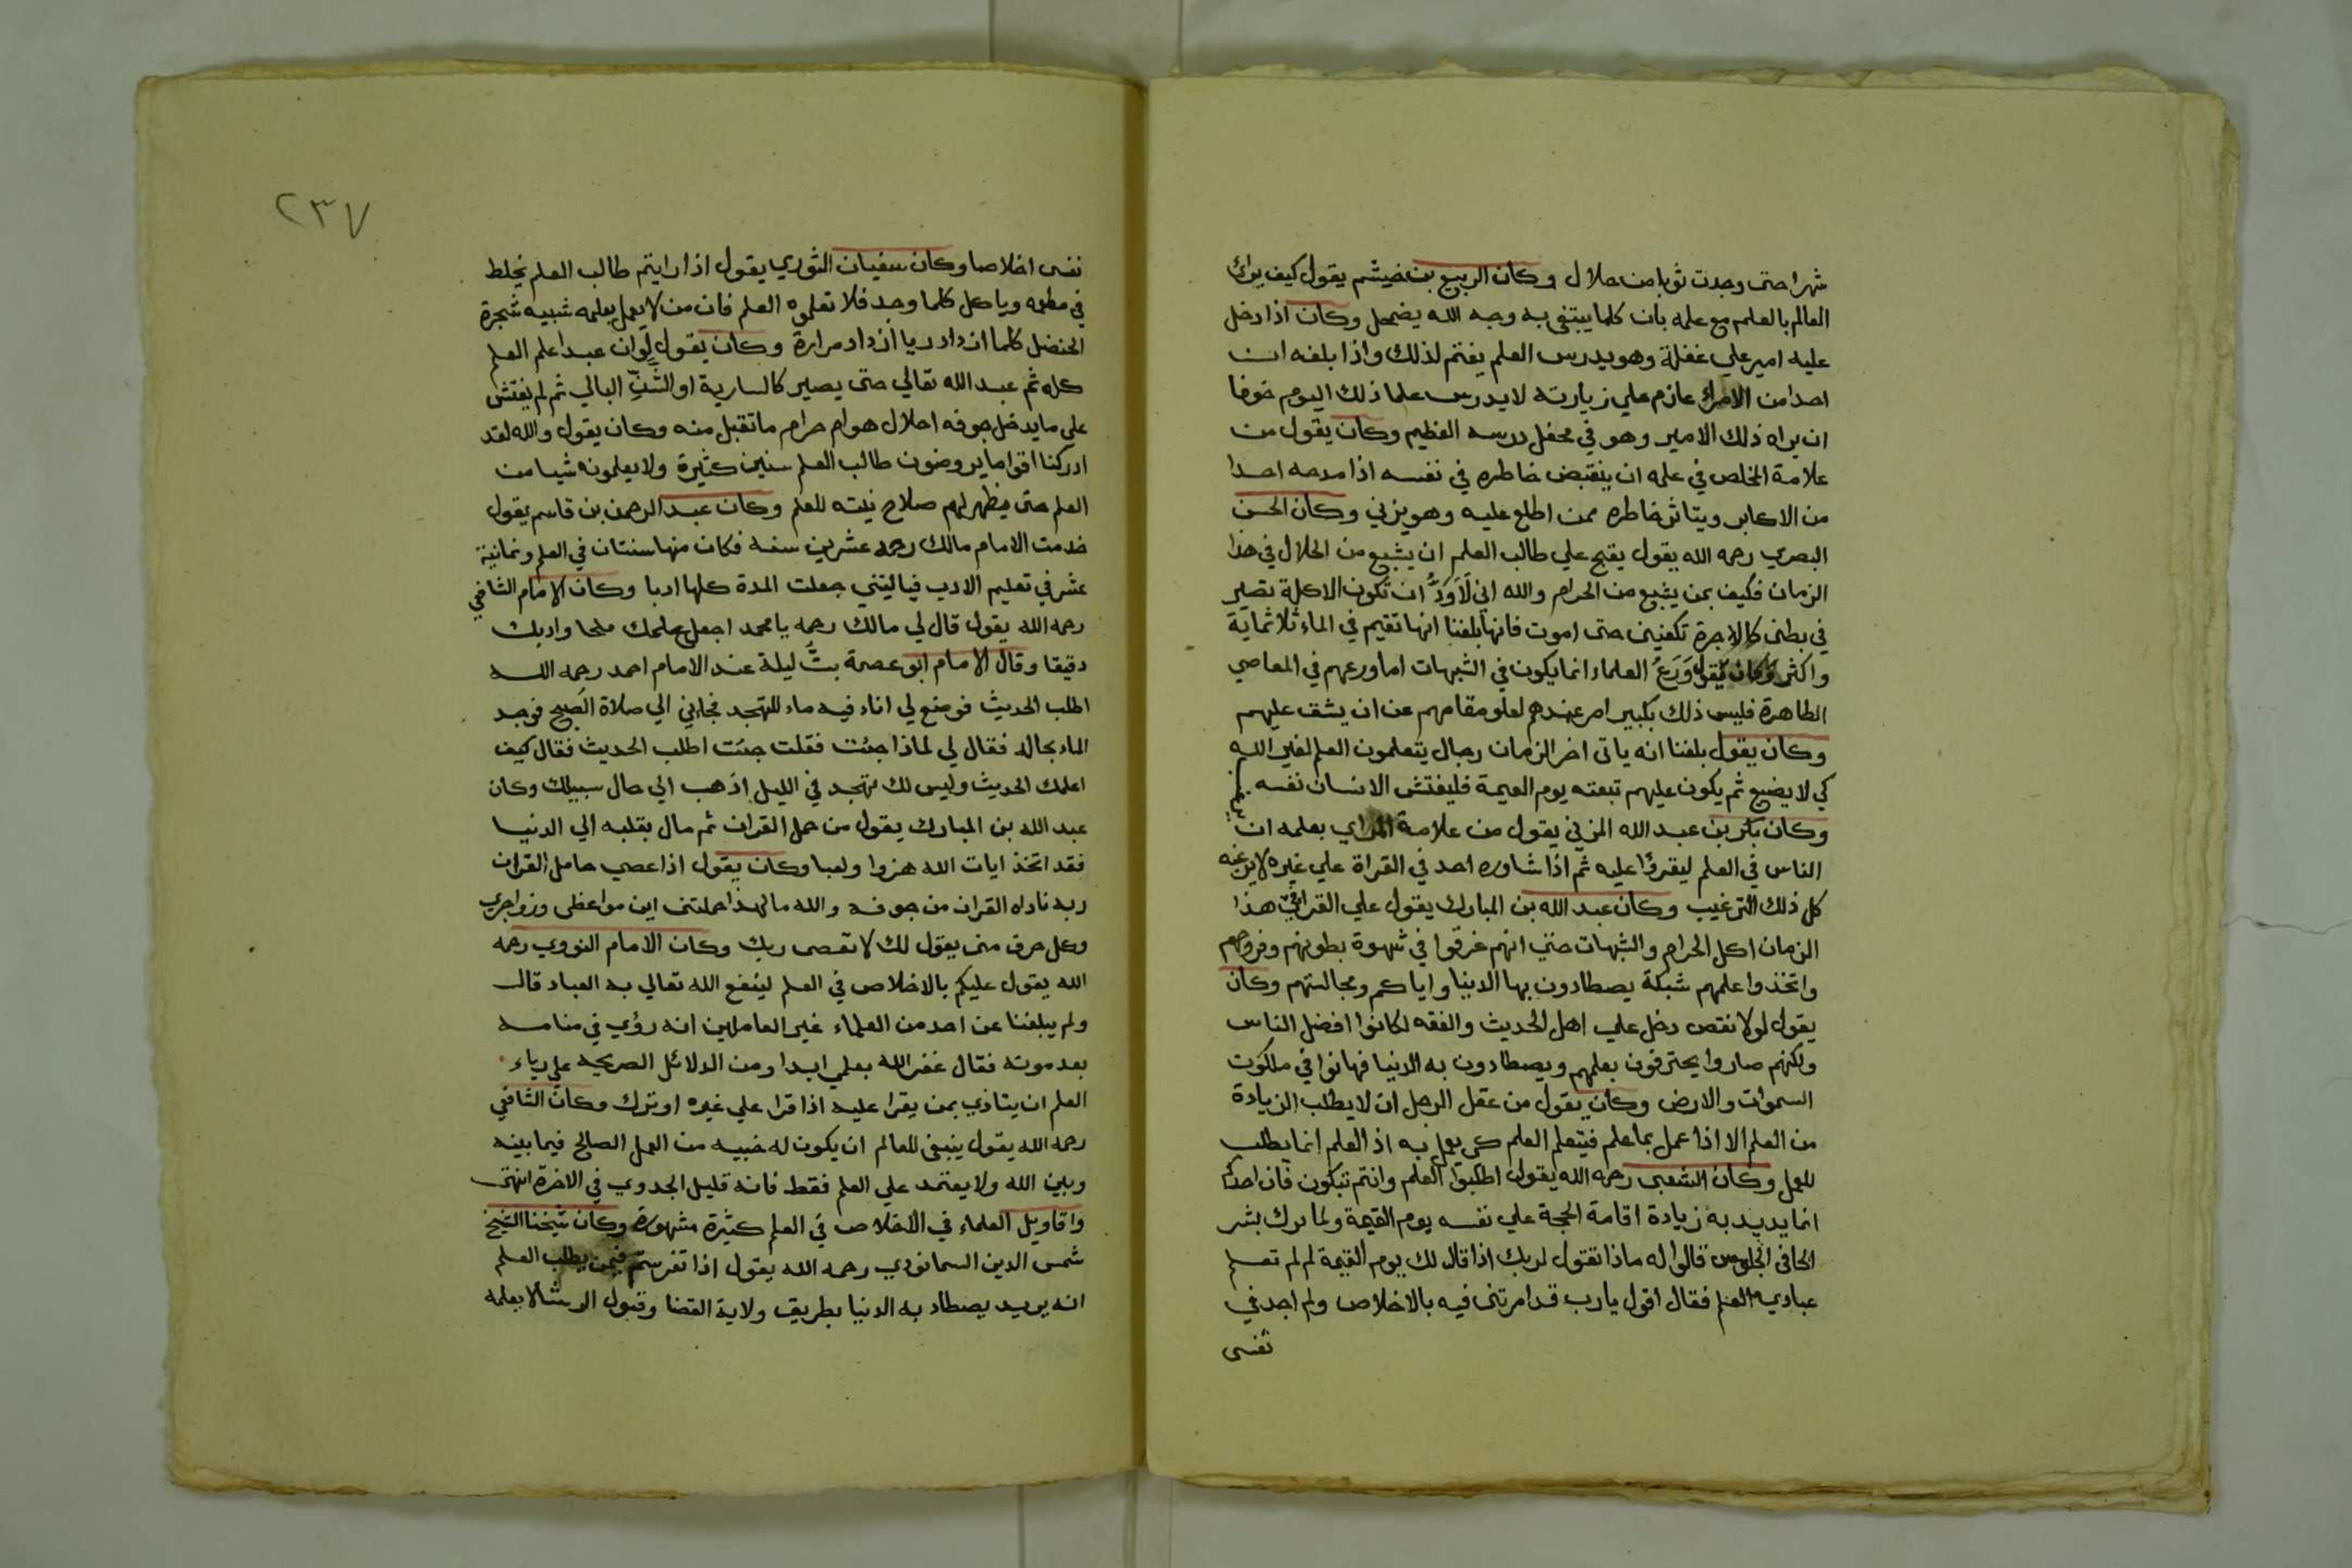 شهرا حتى وجدت ثوبا من حلال وكان الربيع بن خيثم يقول كيف يراك
العالم بالعلم مع علمه بان كلما يبتغى به وجه الله يضمحل وكان اذا دخل
عليه امير علي غفلة وهو يدرس العلم يغتم لذلك واذا بلغه ان
احدا من الامرا عازم علي زيارته لا يدرس علما ذلك اليوم خوفا
ان يراه ذلك الامير وهو في محفل درسه العظيم وكان يقول من
علامة المخلص في علمه ان ينقبض خاطره في نفسه اذا مدحه احدا
من الاكابر ويتاثر خاطره ممن اطلع عليه وهو يزني وكان الحسن
البصري رحمه الله يقول يقبح علي طالب العلم ان يشبع من الحلال في هذا
الزمان فكيف بمن يشبع من الحرام والله اني لَاَوَدُّ ان تكون الاكلة تصير
في بطنى كالاجرة تكفين حتى اموت فانها بلغنا انها تقيم في الماء ثلاثماية
واكثر وكان يقول وَرَعُ العلماء انما يكون في الشبهات اما ورعهم في المعاصي
الظاهرة فليس ذلك بكبير امر عندهم لعلو مقامهم عن ان يشق عليهم
وكان يقول بلغنا انه ياتى اخر الزمان رجال يتعلمون العلم لغير الله
كي لا يضيع ثم يكون عليهم تبعته يوم القيمة فليفتش الانسان نفسه
وكان بكر بن عبد الله المزني يقول من علامة المراي بعلمه ان
الناس في العلم ليقرؤا عليه ثم اذا شاوره احد في القراة علي غيره لا يرغبه
كل ذلك الترغيب وكان عبد الله بن المبارك يقول علي القرا في هذا
الزمان اكل الحرام والشبهات حتى انهم غرقوا في شهوة بطونهم وفروجهم
واتخذوا علمهم شبكة يصطادون بها الدنيا واياكم ومجالستهم وكان
يقول لولا نقص دخل علي اهل الحديث والفقه لكانوا افضل الناس
ولكنهم صاروا يحترفون بعلمهم ويصطادون به الدنيا فهانوا في ملكوت
السموات والارض وكان يقول من عقل الرجل ان لا يطلب الزيادة
من العلم الا اذا عمل بما علم فيتعلم العلم كى يعمل به اذ العلم انما يطلب
للعمل وكان الشعبى رحمه الله يقول اطلبوا العلم وانتم تبكون فان احدكم
انما يريد به زيادة اقامة الحجة علي نفسه يوم القيمة ولما ترك بشر
الحافى الجلوس قالوا له ماذا تقول لربك اذا قال لك يوم القيمة لم لم تعلم
عبادي العلم فقال اقول يا رب قد امرتنى فيه بالاخلاص ولم اجد في
نفسى
٢٣٧
نفسى اخلاصا وكان سفيان الثوري يقول اذا رايتم طالب العلم يخلط
في مطعمه وياكل كلما وجد فلا تعلموه العلم فان من لا يعمل بعلمه شبيه شجرة
الحنضل كلما ازداد ريا ازداد مرارة وكان يقول لو ان عبدا علم العلم
كله ثم عبد الله تعالي حتى يصير كالسارية او الشَّنِّ البالي ثم لم يفتش
علي ما يدخل جوفه احلال هو ام حرام ما تقبل منه وكان يقول والله لقد
ادركنا اقواما يروضون طالب العلم سنين كثيرة ولا يعلمونه شيا من
العلم حتى يظهر لهم صلاح نيته للعلم وكان عبد الرحمن بن قاسم يقول
خدمت الامام مالك رحمه عشرين سنة فكان منها سنتان في العلم وثمانية
عشر في تعليم الادب فياليتني جعلت المدة كلها ادبا وكان الامام الشافعي
رحمه الله يقول قال لي مالك رحمه يا محمد اجعل علمك ملحا وادبك
دقيقا وقال الامام ابو عصمة بتُّ ليلة عند الامام احمد رحمه الله
اطلب الحديث فوضع لي اناء فيه ماء للتهجد فجاني الي صلاة الصبح فوجد
الماء بحاله فقال لي لماذا جئت فقلت جئت اطلب الحديث فقال كيف
اعلمك الحديث وليس لك تهجد في الليل اذهب الي حال سبيلك وكان
عبد الله بن المبارك يقول من حمل القران ثم مال بقلبه الي الدنيا
فقد اتخذ ايات الله هزوا ولعبا وكان يقول اذا عصي حامل القران
ربه ناداه القران من جوفه والله ما لهذا حملتنى اين مواعظى وزواجري
وكل حرف منى يقول لك لا تعصى ربك وكان الامام النووي رحمه
الله يقول عليكم بالاخلاص في العلم لينفع الله تعالي به العباد قال
ولم يبلغنا عن احد من العلماء غير العاملين انه رؤي في منامه
بعد موته فقال غفر الله بعلمي ابدا ومن الدلائل الصريحه علي رياء
العلم ان يتاذي بمن يقرا عليه اذا قرا علي غيره او ترك وكان الشافعي
رحمه الله يقول ينبغى للعالم ان يكون له خبيه من العمل الصالح فيما بينه
وبين الله ولا يعتمد علي العلم فقط فانه قليل الجدوي في الاخرة انتهى
واقاويل العلماء في الاخلاص في العلم كثيرة مشهورة وكان شيخنا الشيخ
شمس الدين السمانودي رحمه الله يقول اذا تفرستم فيمن يطلب العلم
انه يريد يصطاد به الدنيا بطريق ولاية القضا وقبول الرشا لا بعلمه